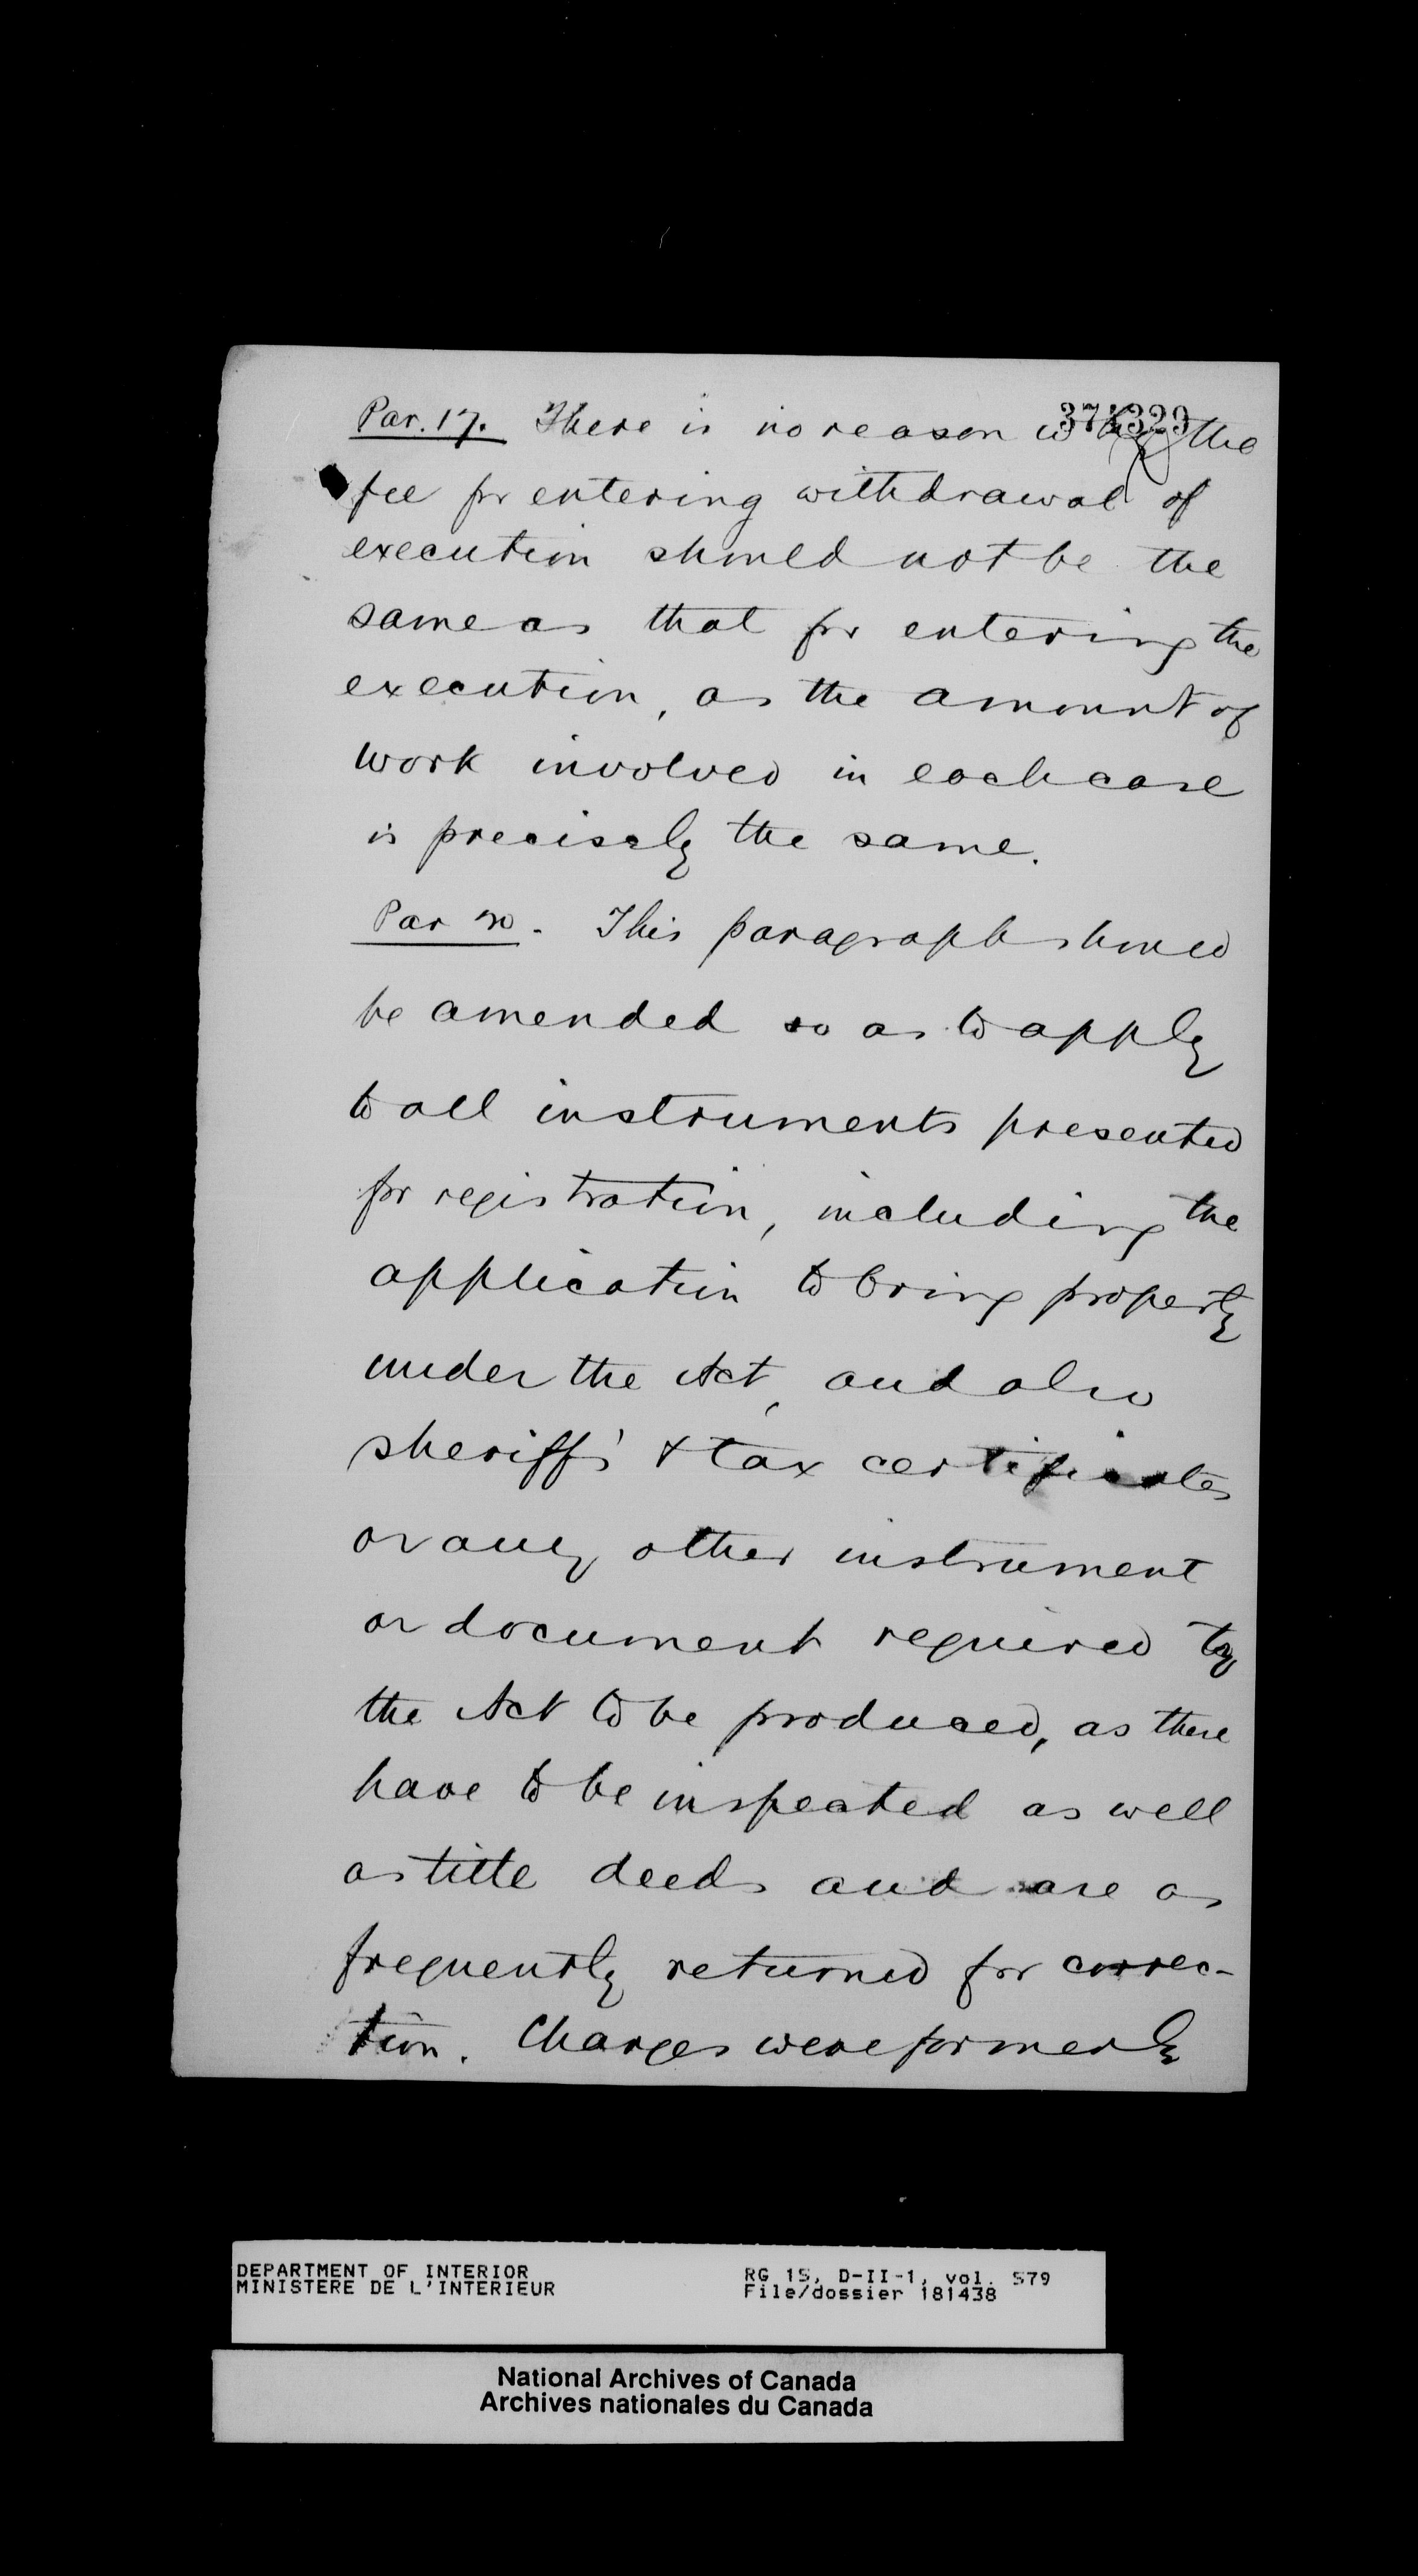 374329
Par. 17. There is no reason why the
fee for entering withdrawal of
execution should not be the
same as that for entering the
execution, as the amount of
work involved in each case
is precisely the same.
Par 20. This paragraph should
be amended so as to apply
to all instruments presented
for registration, including the
application to bring property
under the Act, and also
sheriffs' & tax certificates
or any other instrument
or document required by
the Act to be produced, as these
have to be inspected as well
as title deeds and are as
frequently returned for correc-
tion. Charges were formerly
DEPARTMENT OF INTERIOR
MINISTERE DE L'INTERIEUR
RG 15, D-II-1, vol. 579
File/dossier 181438
National Archives of Canada
Archives nationales du Canada